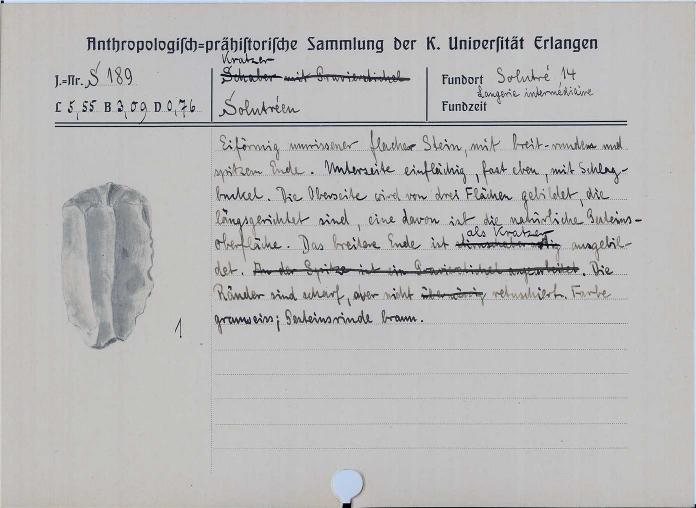 Anthropologisch=prähistorische Sammlung der K. Universität Erlangen
J.=Nr. S 189
L 5,55 B 3,09 D 0,76
Kratzer
Schaber mit Gravierstichel
Solutréen
Fundort Solutré 14
Laugerie intermédiaire
Fundzeit
Eiförmig umrissener flacher Stein, mit breit-rundem und
spitzem Ende. Unterseite einflächig, fast eben, mit Schlag-
buckel. Die Oberseite wird von drei Flächen gebildet, die
längsgerichtet sind, eine davon ist die natürliche Gesteins-
als Kratzer
oberfläche. Das breitere Ende ist ausgebil-
det. An der Spitze ist ein Gravierstichel angearbeitet. Die
Ränder sind scharf, aber nicht retuschiert. Farbe
grauweiss; Gesteinsrinde braun.
1